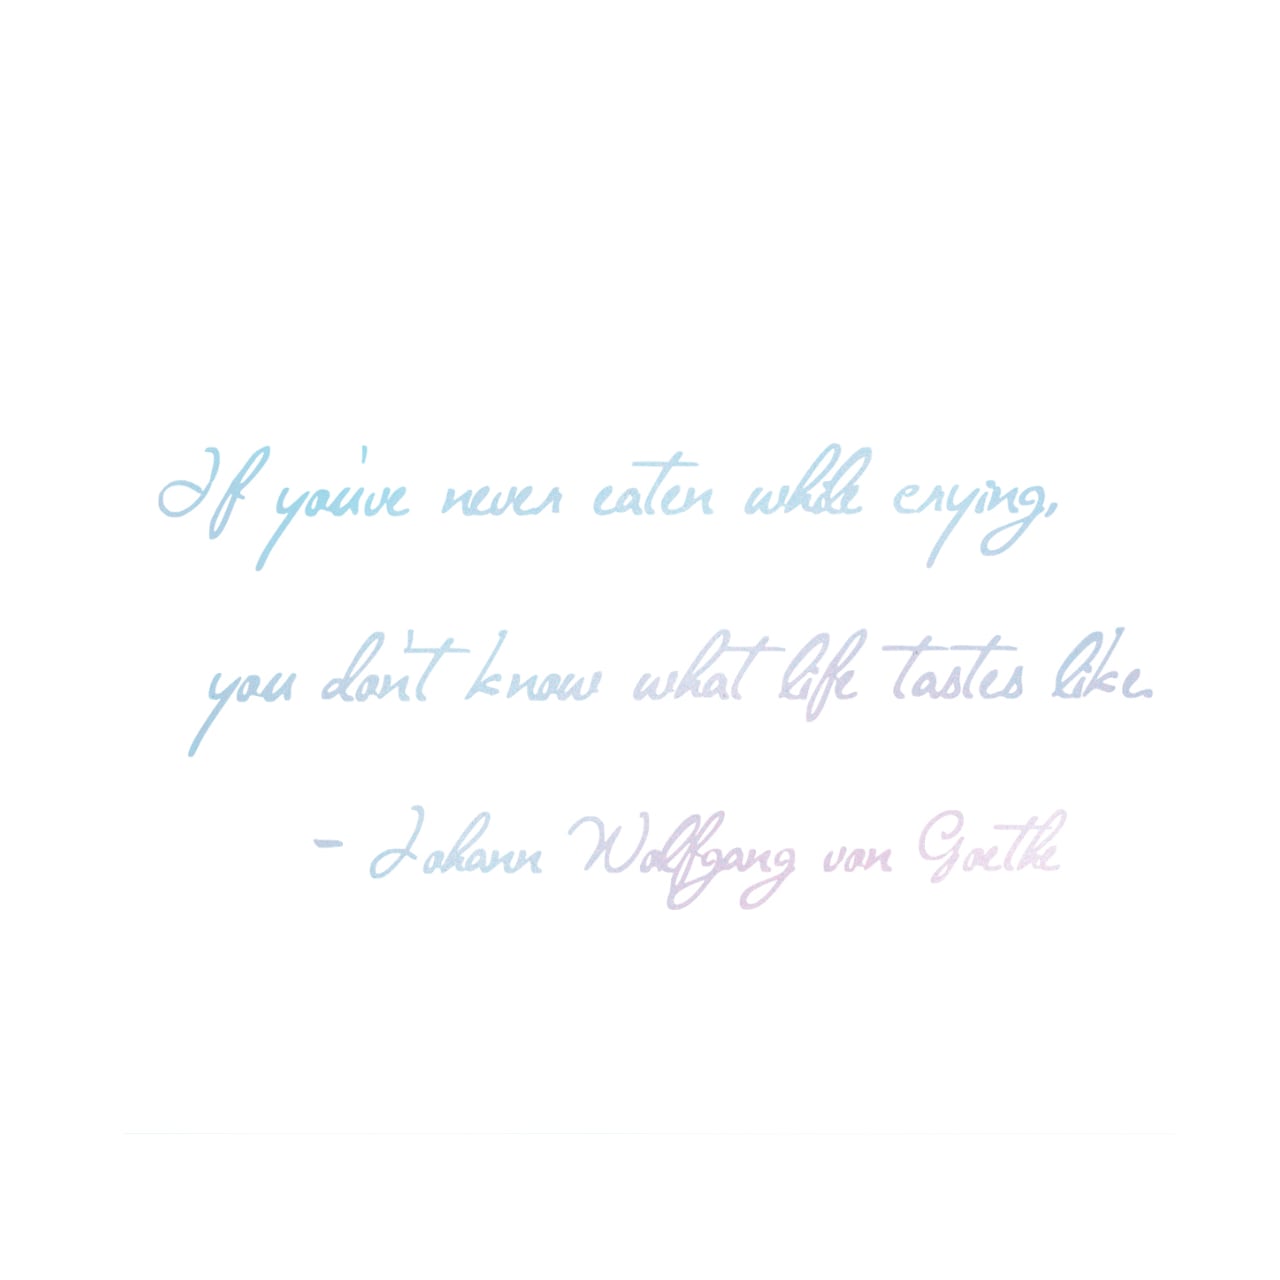 If you've never eaten while crying,
you don't know what life tastes like.
- Johann Wolfgang von Goethe